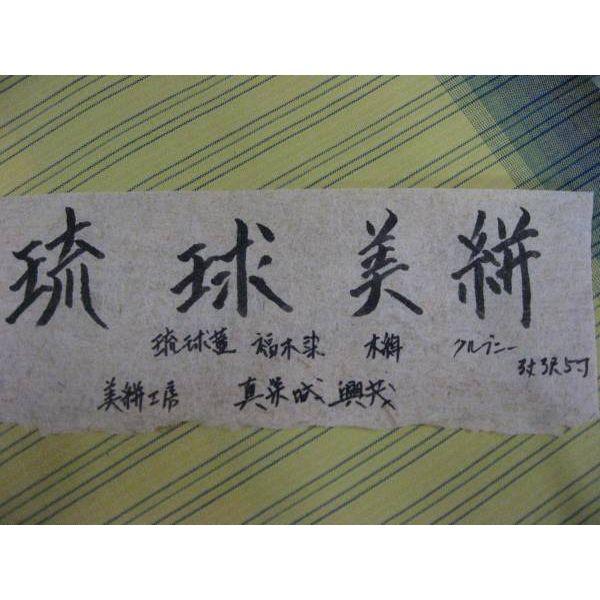 琉球美絣
琉球藍 福木染 木斛 クルニー
3丈3尺5寸
美絣工房 真栄城 興茂